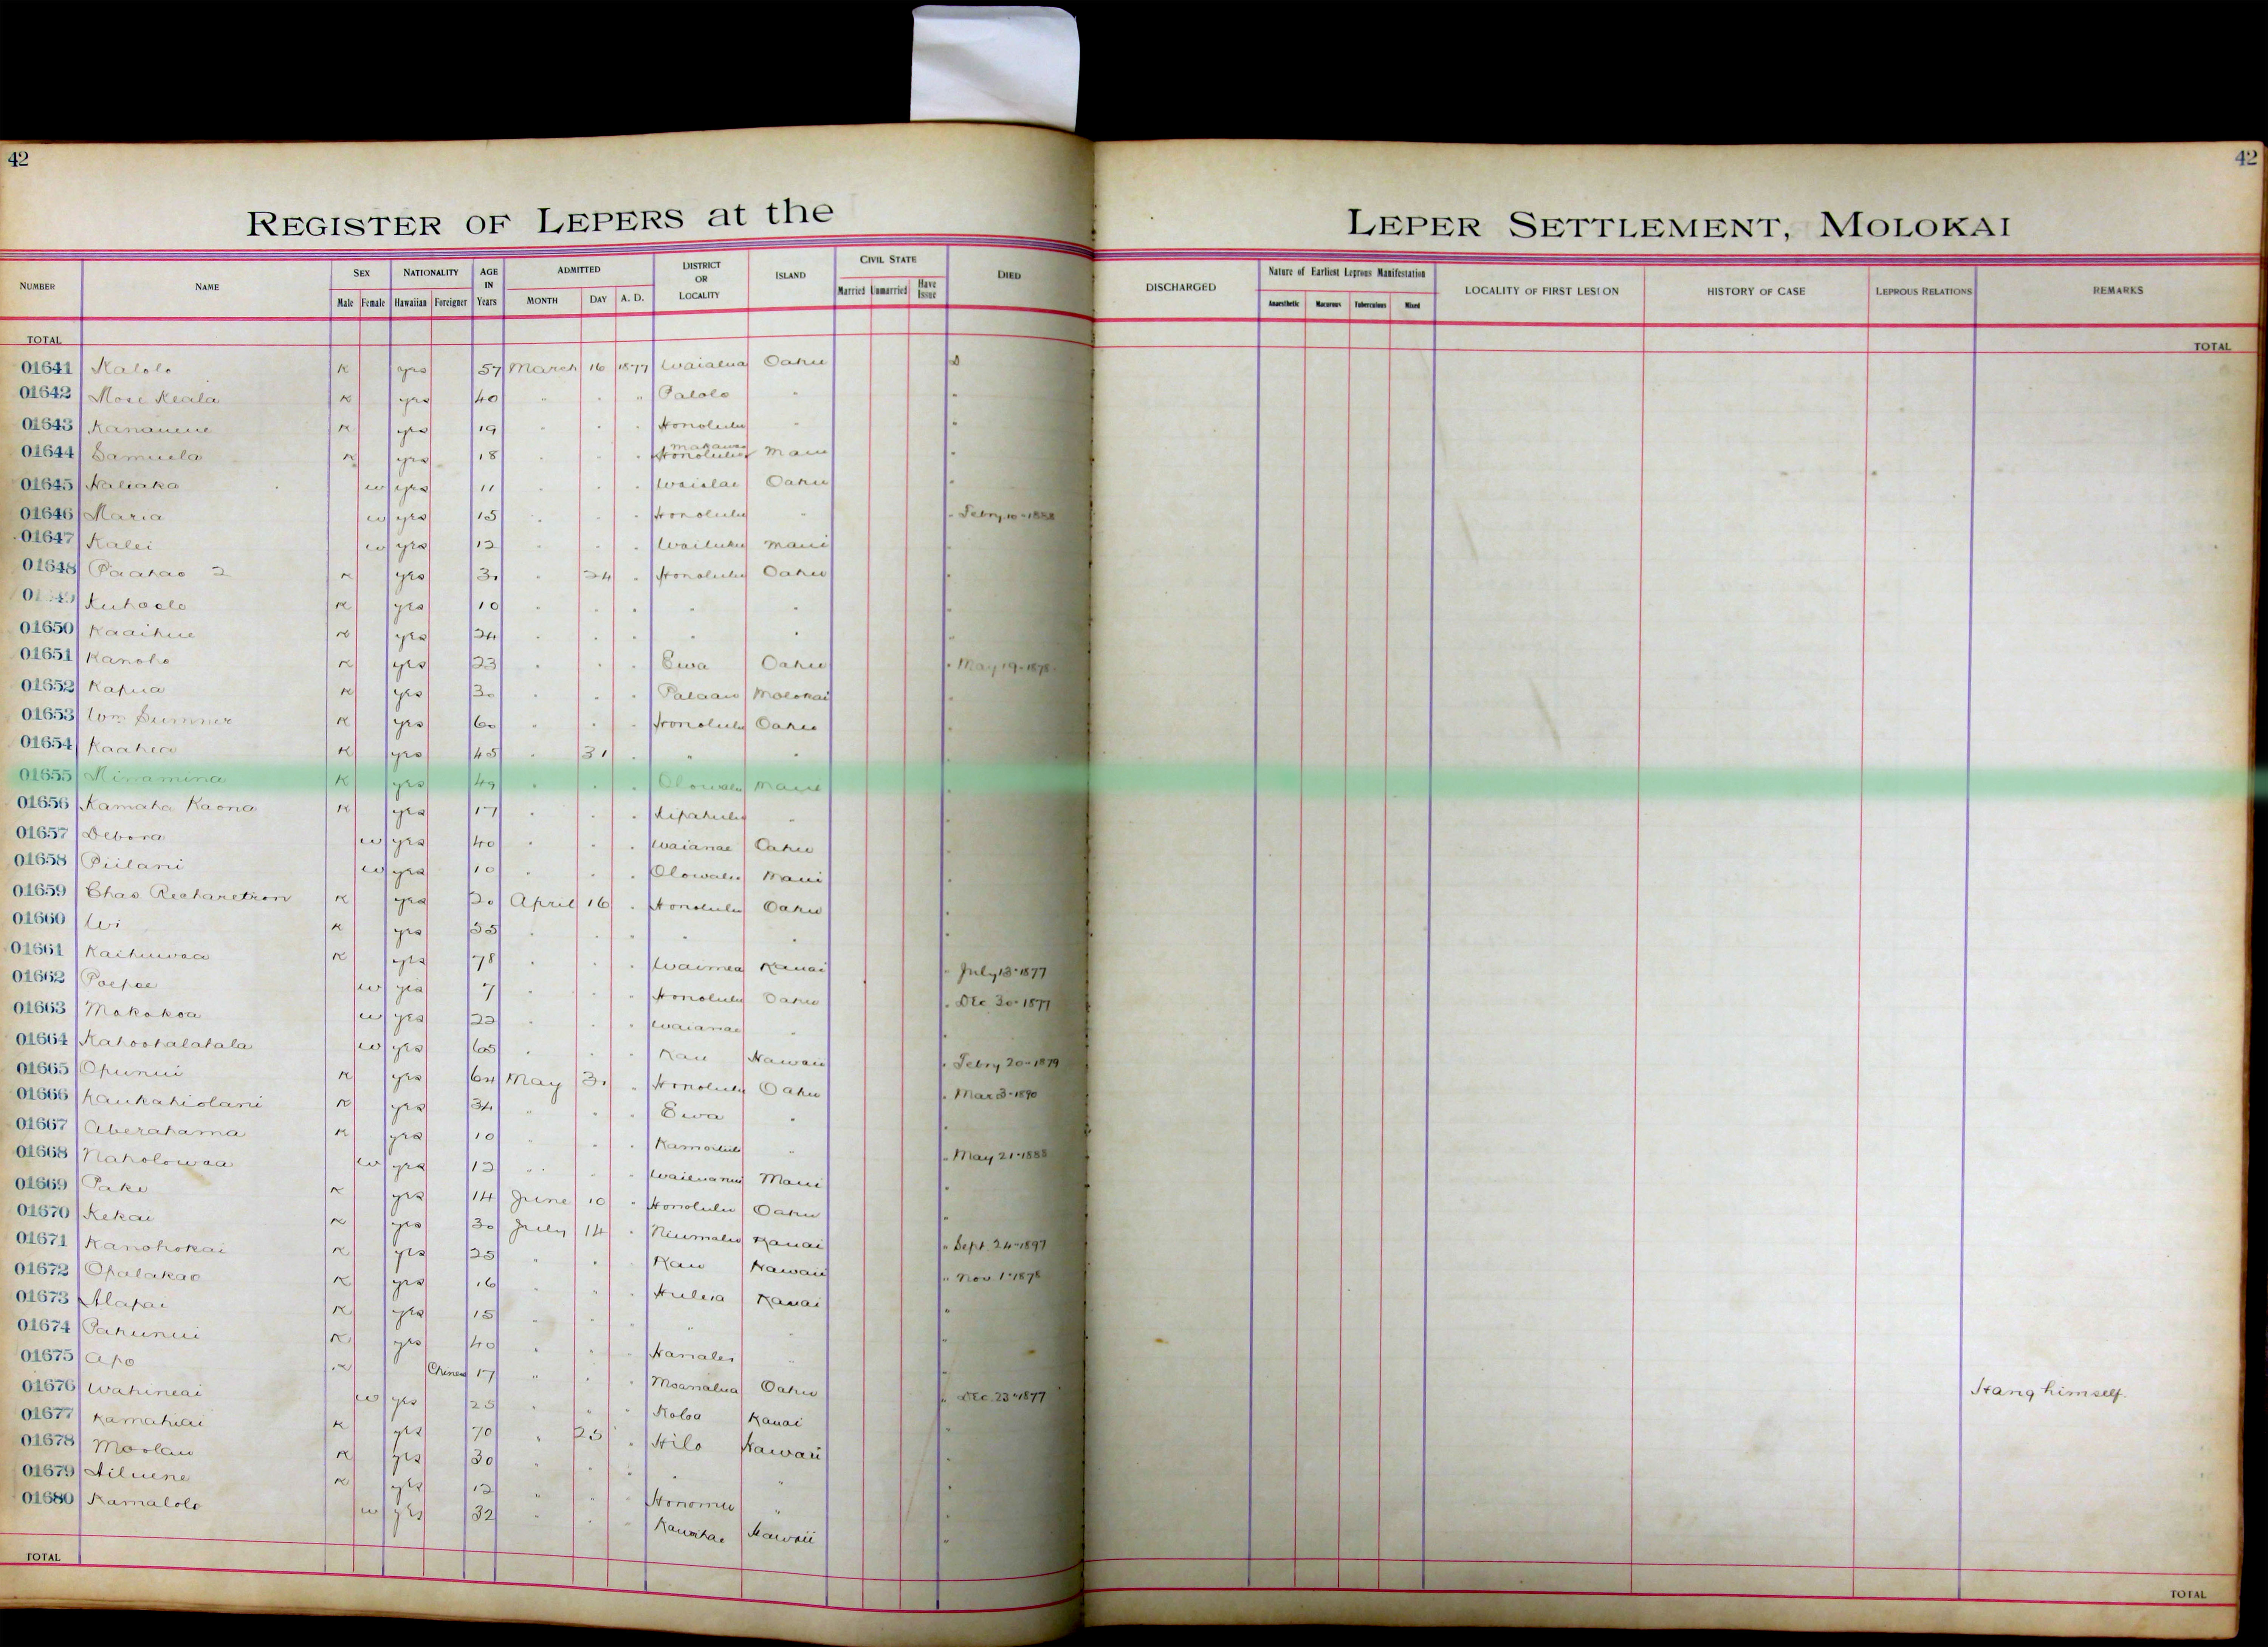 42
42
REGISTER OF LEPERS at the LEPER SETTLEMENT, MOLOKAI
NUMBER NAME SEX NATIONALITY AGE IN Years ADMITTED DISTRICT OR LOCALITY ISLAND CIVIL STATE DIED DISCHARGED Nature of Earliest Leprous Manifestation LOCALITY OF FIRST LESION HISTORY OF CASE LEPROUS RELATIONS REMARKS
Male Female Hawaiian Foreigner MONTH DAY A. D. Married Unmarried Have Issue Anaesthetic Macurous Tuberculous Mixed
TOTAL TOTAL
01641 Kalolo K yes 57 March 16 1877 Waialua Oahu D
01642 Mose Keala K yes 40 " " " Palolo " "
01643 Kananene K yes 19 " " " Honolulu " "
01644 Samuela K yes 18 " " " Honolulu Makawao Maui "
01645 Naliaka w yes 11 " " " Waialae Oahu "
01646 Maria w yes 15 " " " Honolulu " " Febry 10-1888
01647 Kalei w yes 12 " " " Wailuku Maui "
01648 Paahao 2 K yes 30 " 24 " Honolulu Oahu "
Kuhaelo K yes 10 " " " " " "
01650 Kaaihue K yes 24 " " " " " "
01651 Kanoho K yes 23 " " " Ewa Oahu " May 19-1878
01652 Kapua K yes 30 " " " Palaau Molokai "
01653 Wm Sumner K yes 60 " " " Honolulu Oahu "
01654 Kaahea K yes 45 " 31 " " " "
01655 Minamina K yes 49 " " " Olowalu Maui "
01656 Kamaha Kaona K yes 17 " " " Kipahulu " "
01657 Debora w yes 40 " " " Waianae Oahu "
01658 Piilani w yes 10 " " " Olowalu Maui "
01659 Chas Richardson K yes 20 April 16 " Honolulu Oahu "
01660 Wi K yes 35 " " " " " "
01661 Kaihuwaa K yes 78 " " " Waimea Kauai " July 13-1877
01662 Poepoe w yes 7 " " " Honolulu Oahu " Dec 30-1877
01663 Makakoa w yes 22 " " " Waianae " "
01664 Kahoohalahala w yes 65 " " " Kau Hawaii " Febry 20-1879
01665 Opunui K yes 64 May 31 " Honolulu Oahu " Mar 3-1890
01666 Kaukahiolani K yes 34 " " " Ewa " "
01667 Aberahama K yes 10 " " " Kamoiliili " " May 21-1888
01668 Naholowaa w yes 12 " " " Wailuanui Maui "
01669 Pake K yes 14 June 10 " Honolulu Oahu "
01670 Kekai K yes 30 July 14 " Niumalu Kauai " Sept. 24-1897
01671 Kanohokai K yes 25 " " " Kau Hawaii " Nov. 1-1878
01672 Opalakao K yes 16 " " " Huleia Kauai "
01673 Alapai K yes 15 " " " " " "
01674 Pahunui K yes 40 " " " Hanalei " "
01675 Apo K Chinese 17 " " " Moanalua Oahu " Dec. 23-1877 Hang himself.
01676 Wahineai w yes 25 " " " Koloa Kauai "
01677 Kamahiai K yes 70 " 25 " Hilo Hawaii "
01678 Moolau K yes 30 " " " " " "
01679 Ailuene K yes 12 " " " Honomu " "
01680 Kamalolo w yes 32 " " " Kawaihae Hawaii "
TOTAL TOTAL